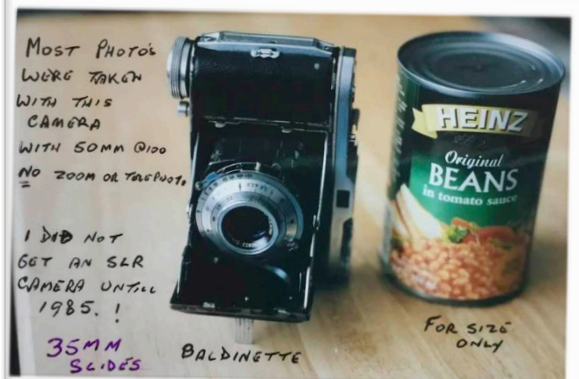 MOST PHOTO'S
WERE TAKEN
WITH THIS
CAMERA
WITH 50MM @100
NO ZOOM OR TELEPHOTO
I DID NOT
GET AN SLR
CAMERA UNTILL
1985.!
35MM
SLIDES
BALDINETTE
HEINZ
Original
BEANS
in tomato sauce
FOR SIZE
ONLY